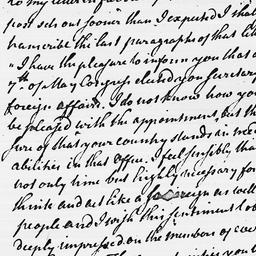 to my
post sets out sooner than I expected I shall
transcribe the last paragraphs of that let
"I have the pleasure to inform you that on
7th of May Congress elected you Secretary
foreign affairs. I do not know how you
be pleased with the appointment, but this
sure of that your country stands in need
abilities in that office. I feel sensibly that
not only time but highly necessary for
think and act like a sovereign as well
people and I wish this sentiment to be
deeply impressed on the members of eve